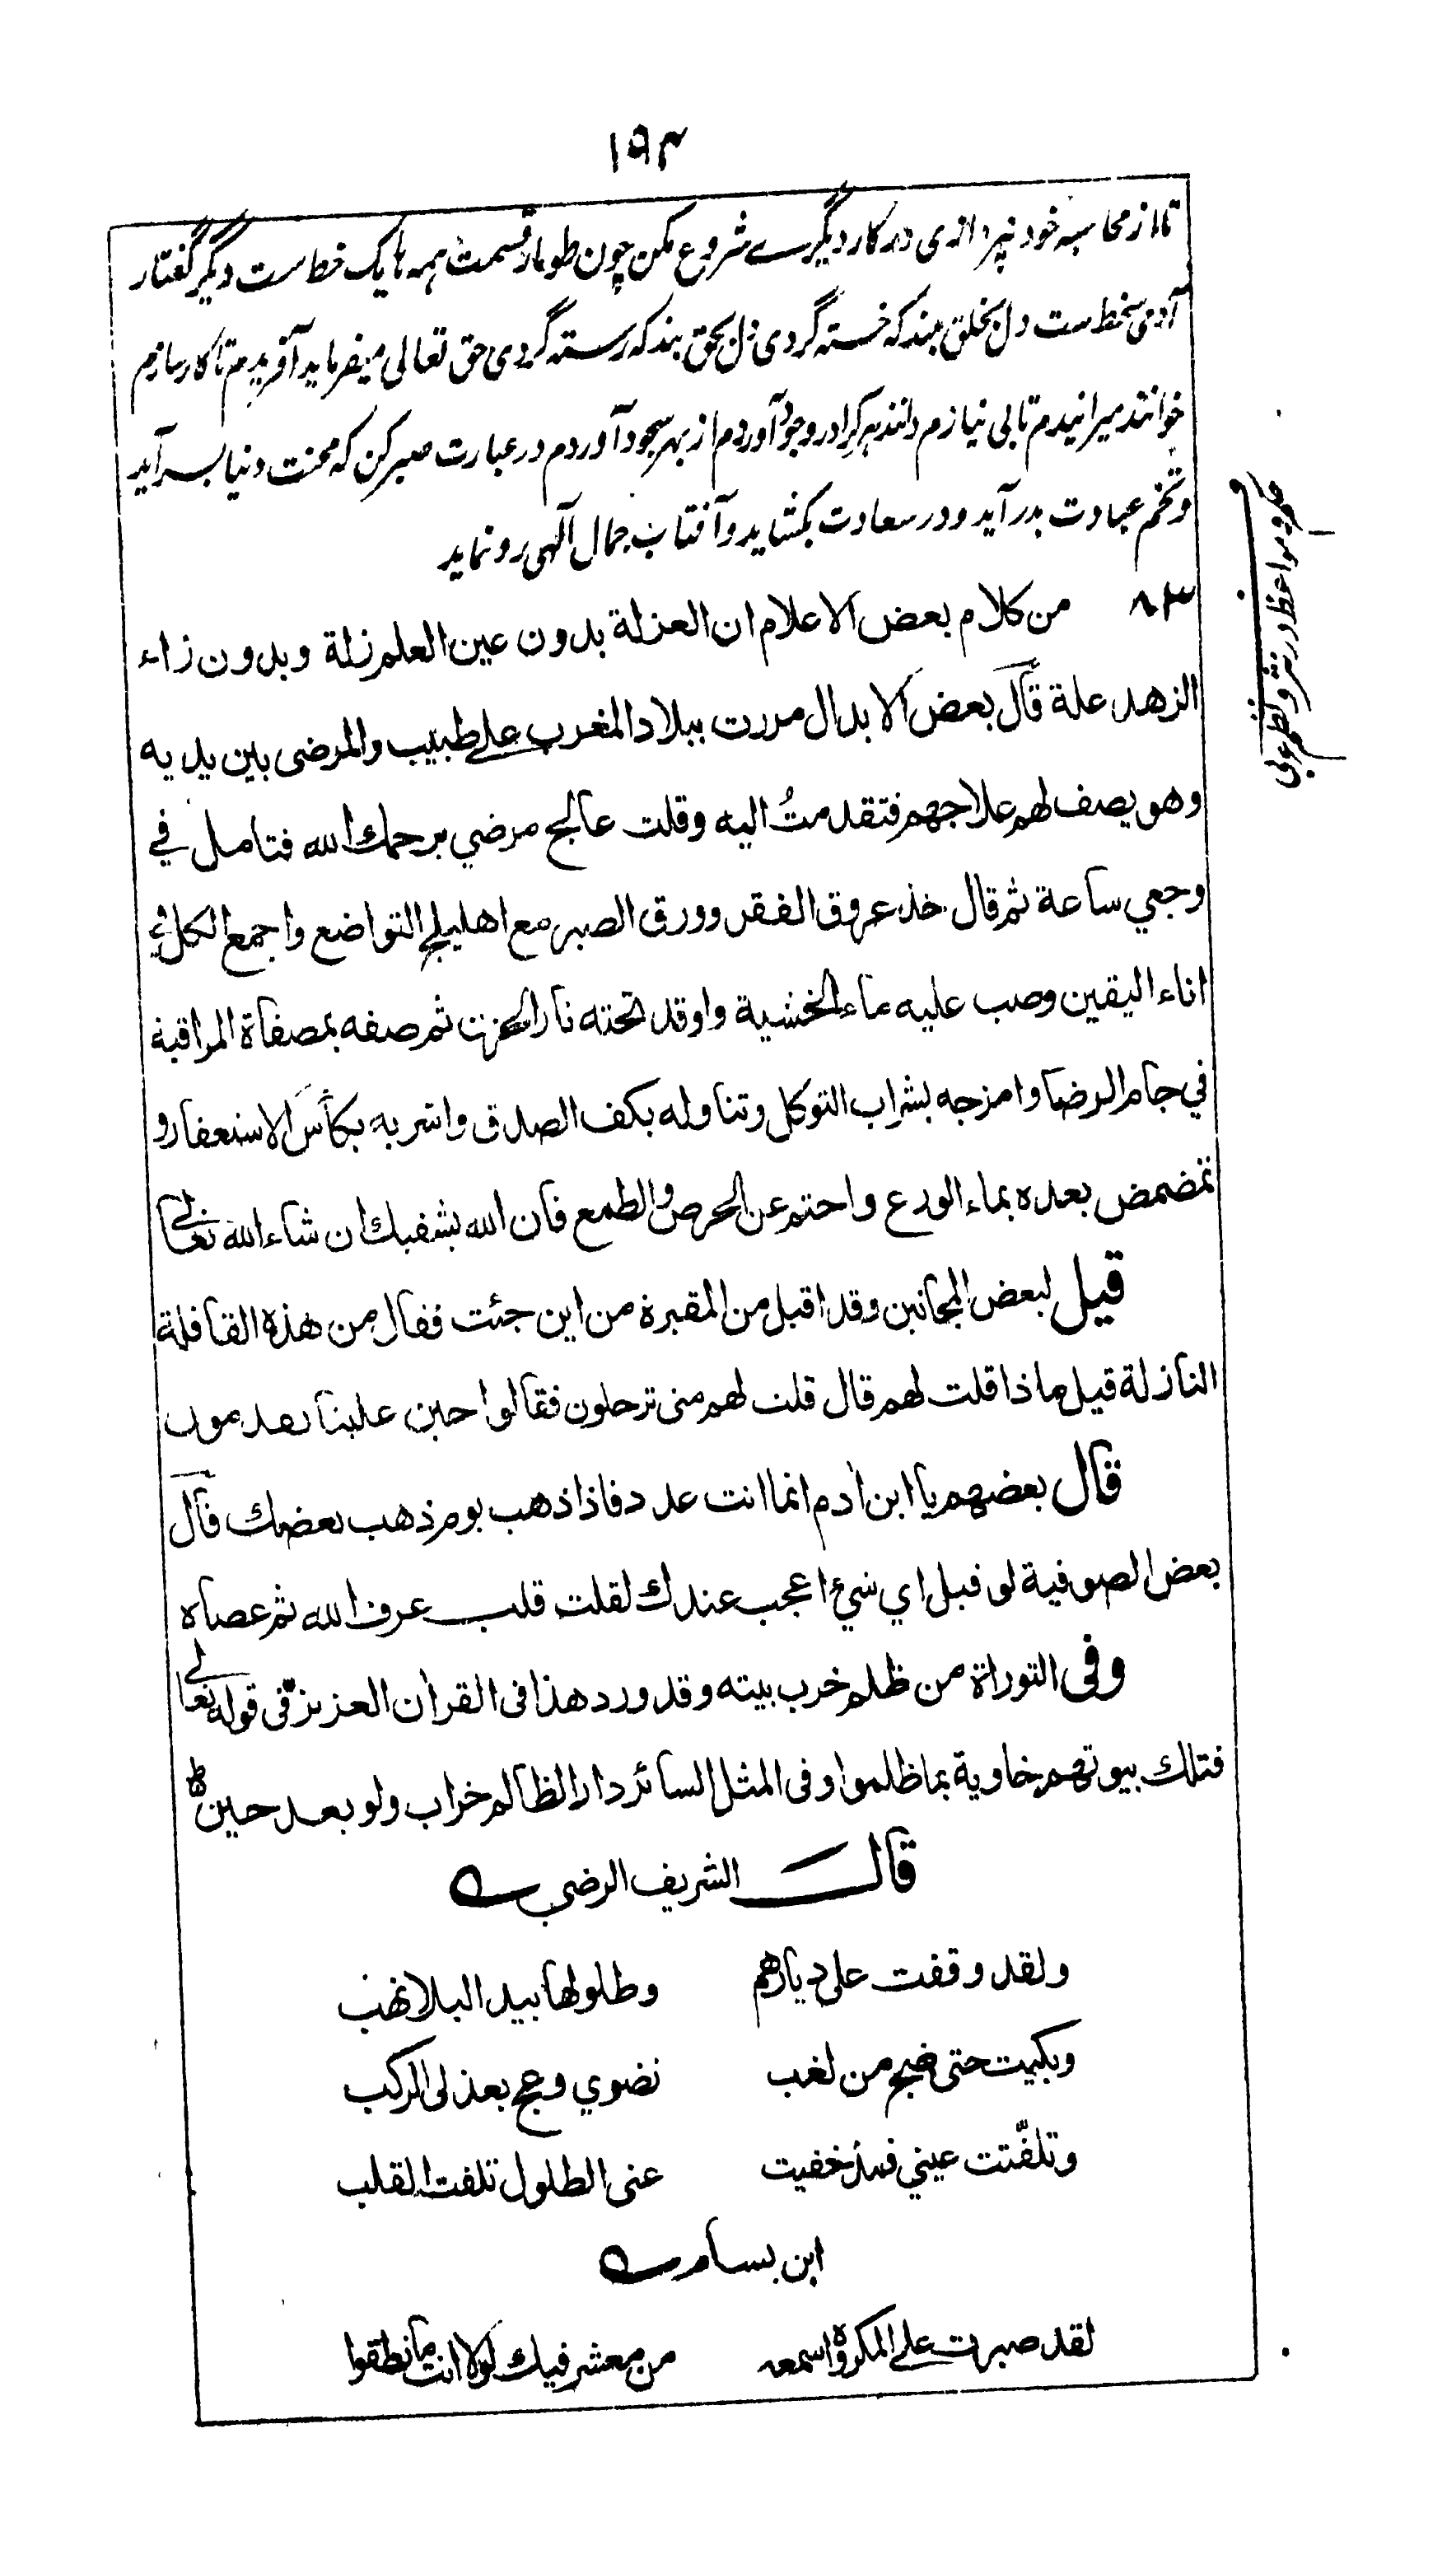 ۱۹۴
تا از محاسبه خود نپردازی در کار دیگرے شروع مکن چون طومار قسمت همه ها یک خط ست دیگر گفتار
آدمی سخط ست دل بخلق مبند که خسته گردی دل بحق بند که رسته گردی حق تعالی میفرماید آفریدم تا کارسازم
خوانند میرانیدم تا بی نیازم دانند هر کرا در وجود آوردم از بهر سجود آوردم در عبارت صبر کن که محنت دنیا بسر آید
وتخم عبادت بدر آید و در سعادت بکشاید وآفتاب جمال آلهی رو نماید
۸۳ من كلام بعض الاعلام ان العزلة بدون عين العلم زلة وبدون زاء
الزهد علة قال بعض الابدال مررت ببلاد المغرب علے طبيب والمرضى بين يديه
وهو يصف لهم علاجهم فتقدمتُ اليه وقلت عالج مرضي يرحمك الله فتامل في
وجهي ساعة ثم قال خذ عروق الفقر وورق الصبر مع اهليلج التواضع واجمع الكل في
اناء اليقين وصب عليه ماء الخشية واوقد تحته نار الحزن ثم صفه بمصفاة المراقبة
في جام الرضا وامزجه بشراب التوكل وتناوله بكف الصدق واشربه بكأس الاستغفار و
تمضمض بعده بماء الورع واحتم عن الحرص والطمع فان الله يشفيك ان شاء الله تعالى
قيل لبعض المجانين وقد اقبل من المقبرة من اين جئت فقال من هذه القافلة
النازلة قيل ماذا قلت لهم قال قلت لهم متى ترحلون فقالوا حين علينا تقدمون
قال بعضهم يا ابن أدم انما انت عدد فاذا ذهب يوم ذهب بعضك قال
بعض الصوفية لو قيل اي شئ اعجب عندك لقلت قلب عرف الله ثم عصاه
وفى التوراة من ظلم خرب بيته وقد ورد هذا فى القرأن العزيز فى قوله تعالى
فتلك بيوتهم خاوية بما ظلموا وفى المثل السائر دار الظالم خراب ولو بعد حين
قال الشريف الرضي
ولقد وقفت على ديارهم وطلولها بيد البلا نهب
وبكيت حتى ضج من لغب نضوي وعج بعذلى الركب
وتلفّتت عيني فمذ خفيت عنى الطلول تلفت القلب
ابن بسام
لقد صبرت علے المكروه اسمعه من معشر فيك لولا انت ما نطقوا
مواعظ در نثر و نظم عربی